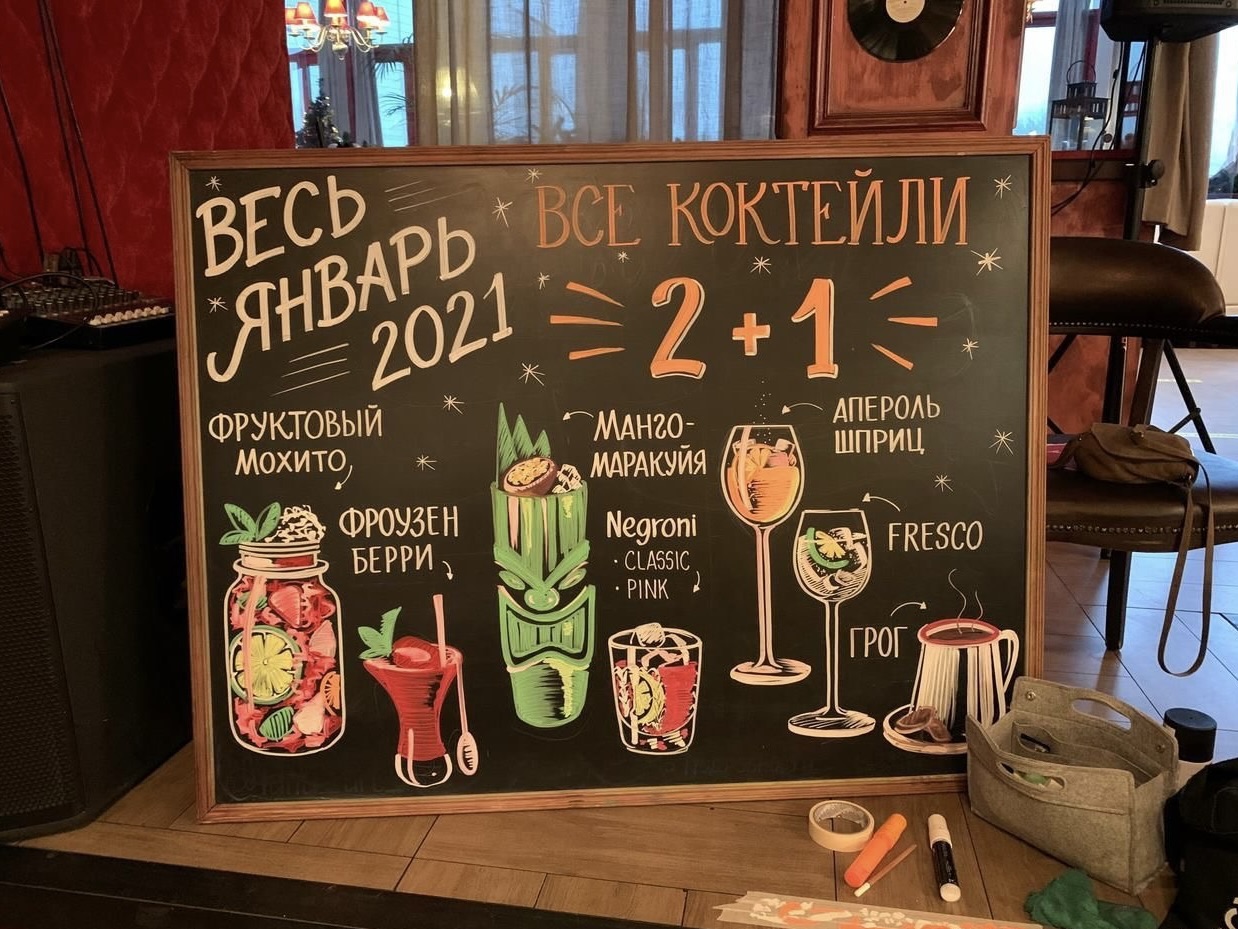 ВЕСЬ
ЯНВАРЬ
2021
ВСЕ КОКТЕЙЛИ
2+1
ФРУКТОВЫЙ
МОХИТО
ФРОУЗЕН
БЕРРИ
МАНГО-
МАРАКУЙЯ
Negroni
· CLASSIC
· PINK
АПЕРОЛЬ
ШПРИЦ
FRESCO
ГРОГ